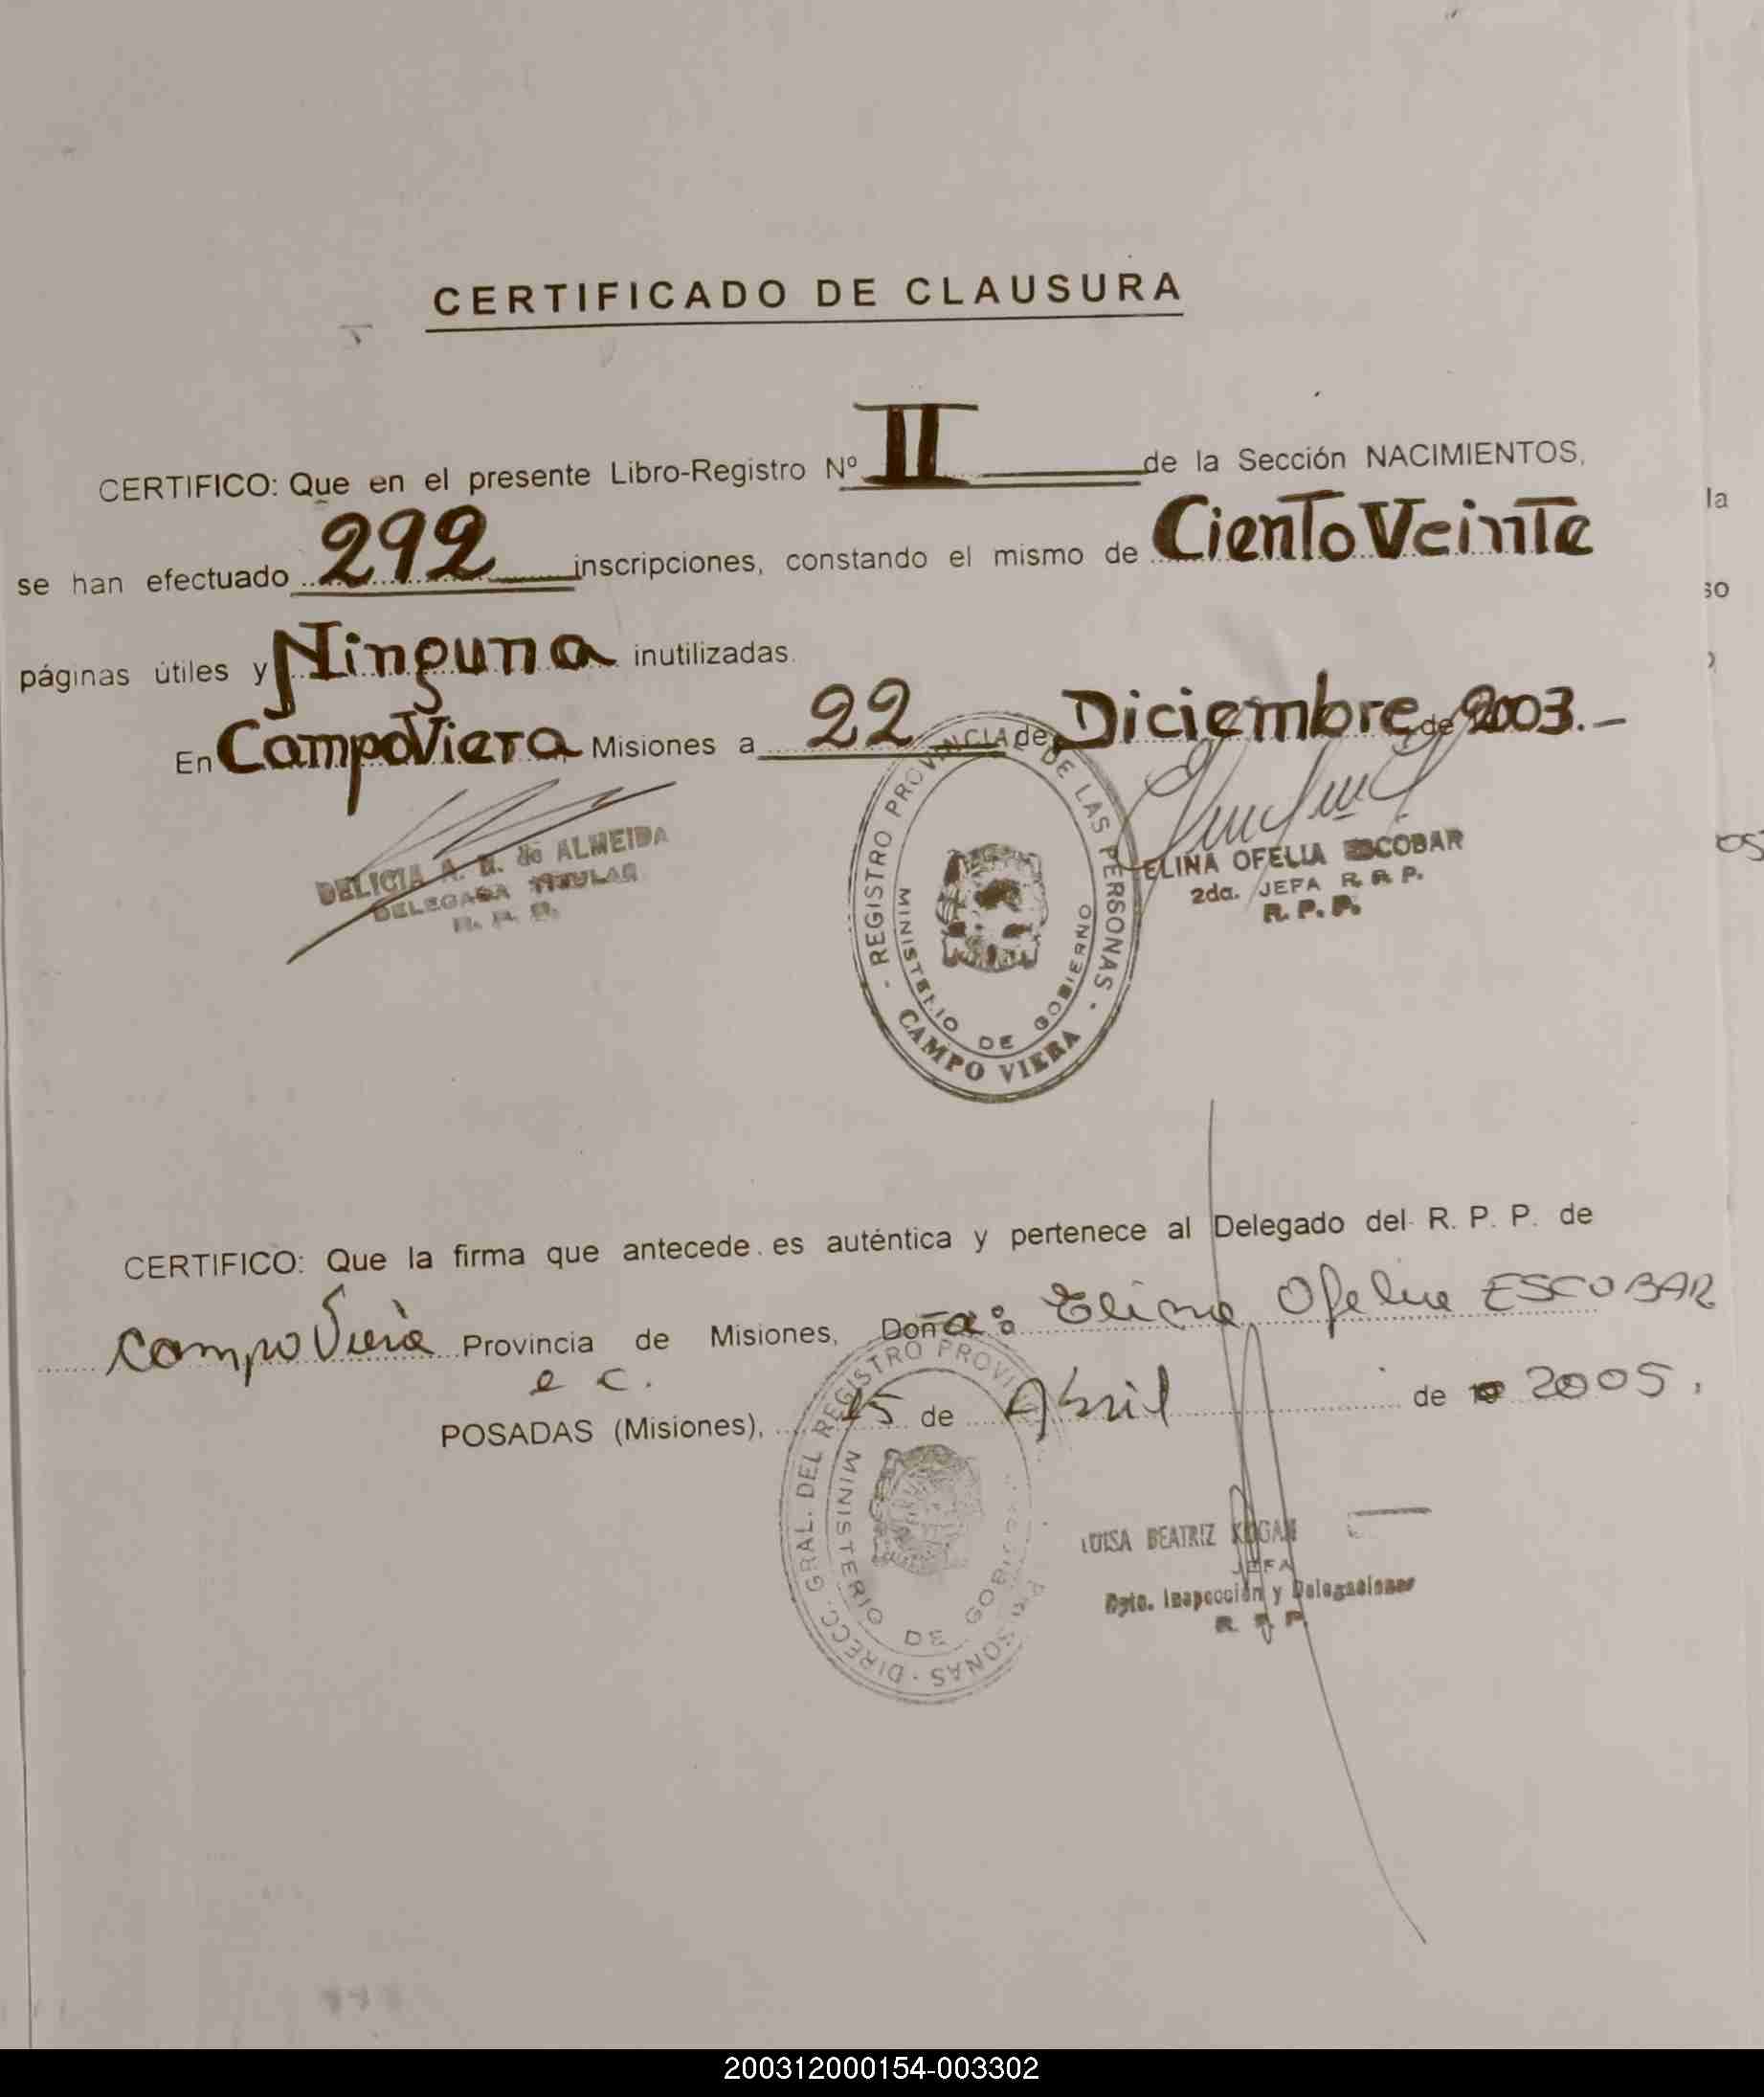 CERTIFICADO DE CLAUSURA
CERTIFICO: Que en el presente Libro-Registro Nº II de la Sección NACIMIENTOS,
se han efectuado 292 inscripciones, constando el mismo de Ciento Veinte
páginas útiles y Ninguna inutilizadas.
En Campo Viera Misiones a 22 de Diciembre de 2003.-
DELICIA A. de ALMEIDA
DELEGADA TITULAR
REGISTRO PROVINCIAL DE LAS PERSONAS
MINISTERIO DE GOBIERNO
CAMPO VIERA
ELINA OFELIA ESCOBAR
2da. JEFA R. R. P.
R. P. P.
la
so
CERTIFICO: Que la firma que antecede es auténtica y pertenece al Delegado del R. P. P. de
Campo Viera Provincia de Misiones, Doña: Elina Ofelia ESCOBAR
e c.
POSADAS (Misiones), 25 de Abril de 2005.
DIRECC. GRAL. DEL REGISTRO PROVINCIAL PERSONAS
MINISTERIO DE GOBIERNO
LUISA BEATRIZ KOGAN
JEFA
Dpto. Inspección y Delegaciones
R. P. P.
200312000154-003302